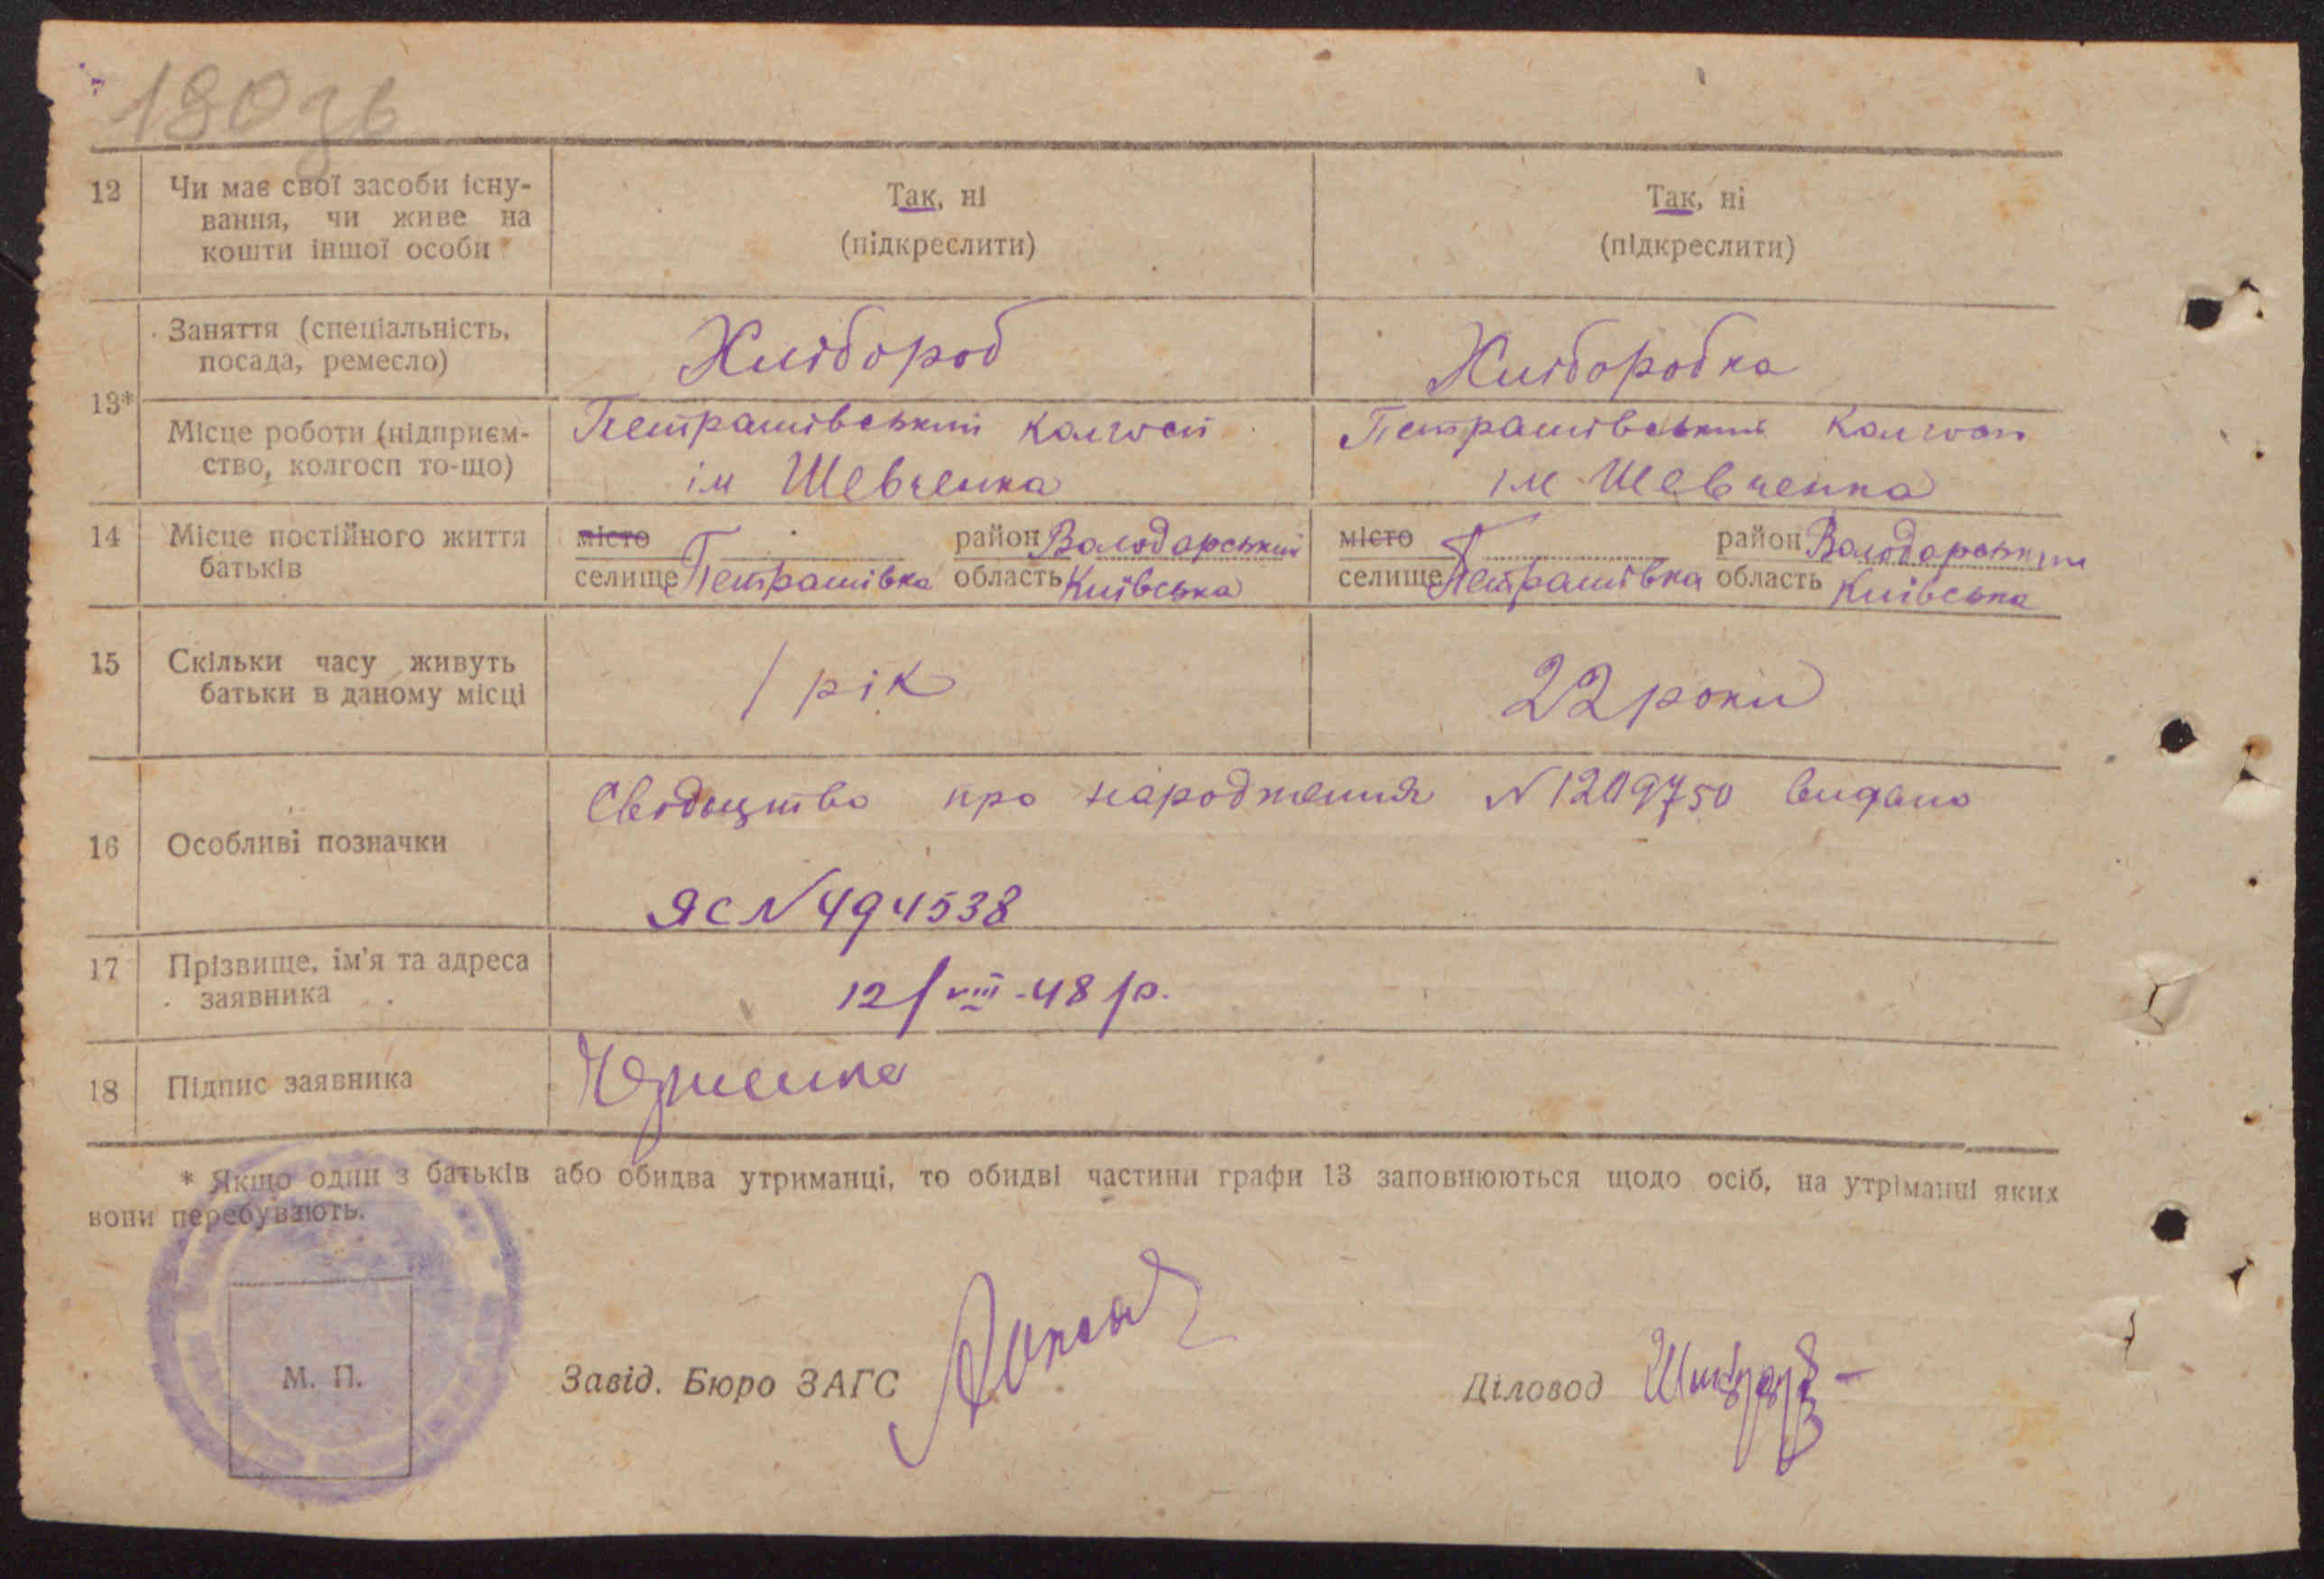 180зв
12 Чи має свої засоби існу- Так, ні Так, ні
вання, чи живе на
кошти іншої особи (підкреслити) (підкреслити)
Заняття (спеціальність, Хлібороб Хліборобка
посада, ремесло)
13*
Місце роботи (підприєм- Петрашівський колгосп Петрашівський колгосп
ство, колгосп то-що) ім Шевченка ім Шевченка
14 Місце постійного життя місто район Володарський місто район Володарський
батьків селище Петрашівка область Київська селище Петрашівка область Київська
15 Скільки часу живуть 1 рік 22 роки
батьки в даному місці
Свідоцтво про народження N 1209750 видано
16 Особливі позначки
ЯС N 494538
17 Прізвище, ім'я та адреса
заявника 12/VIII-48 р.
18 Підпис заявника
* Якщо один з батьків або обидва утриманці, то обидві частини графи 13 заповнюються щодо осіб, на утріманні яких
вони перебувають.
М. П.
Завід. Бюро ЗАГС Діловод